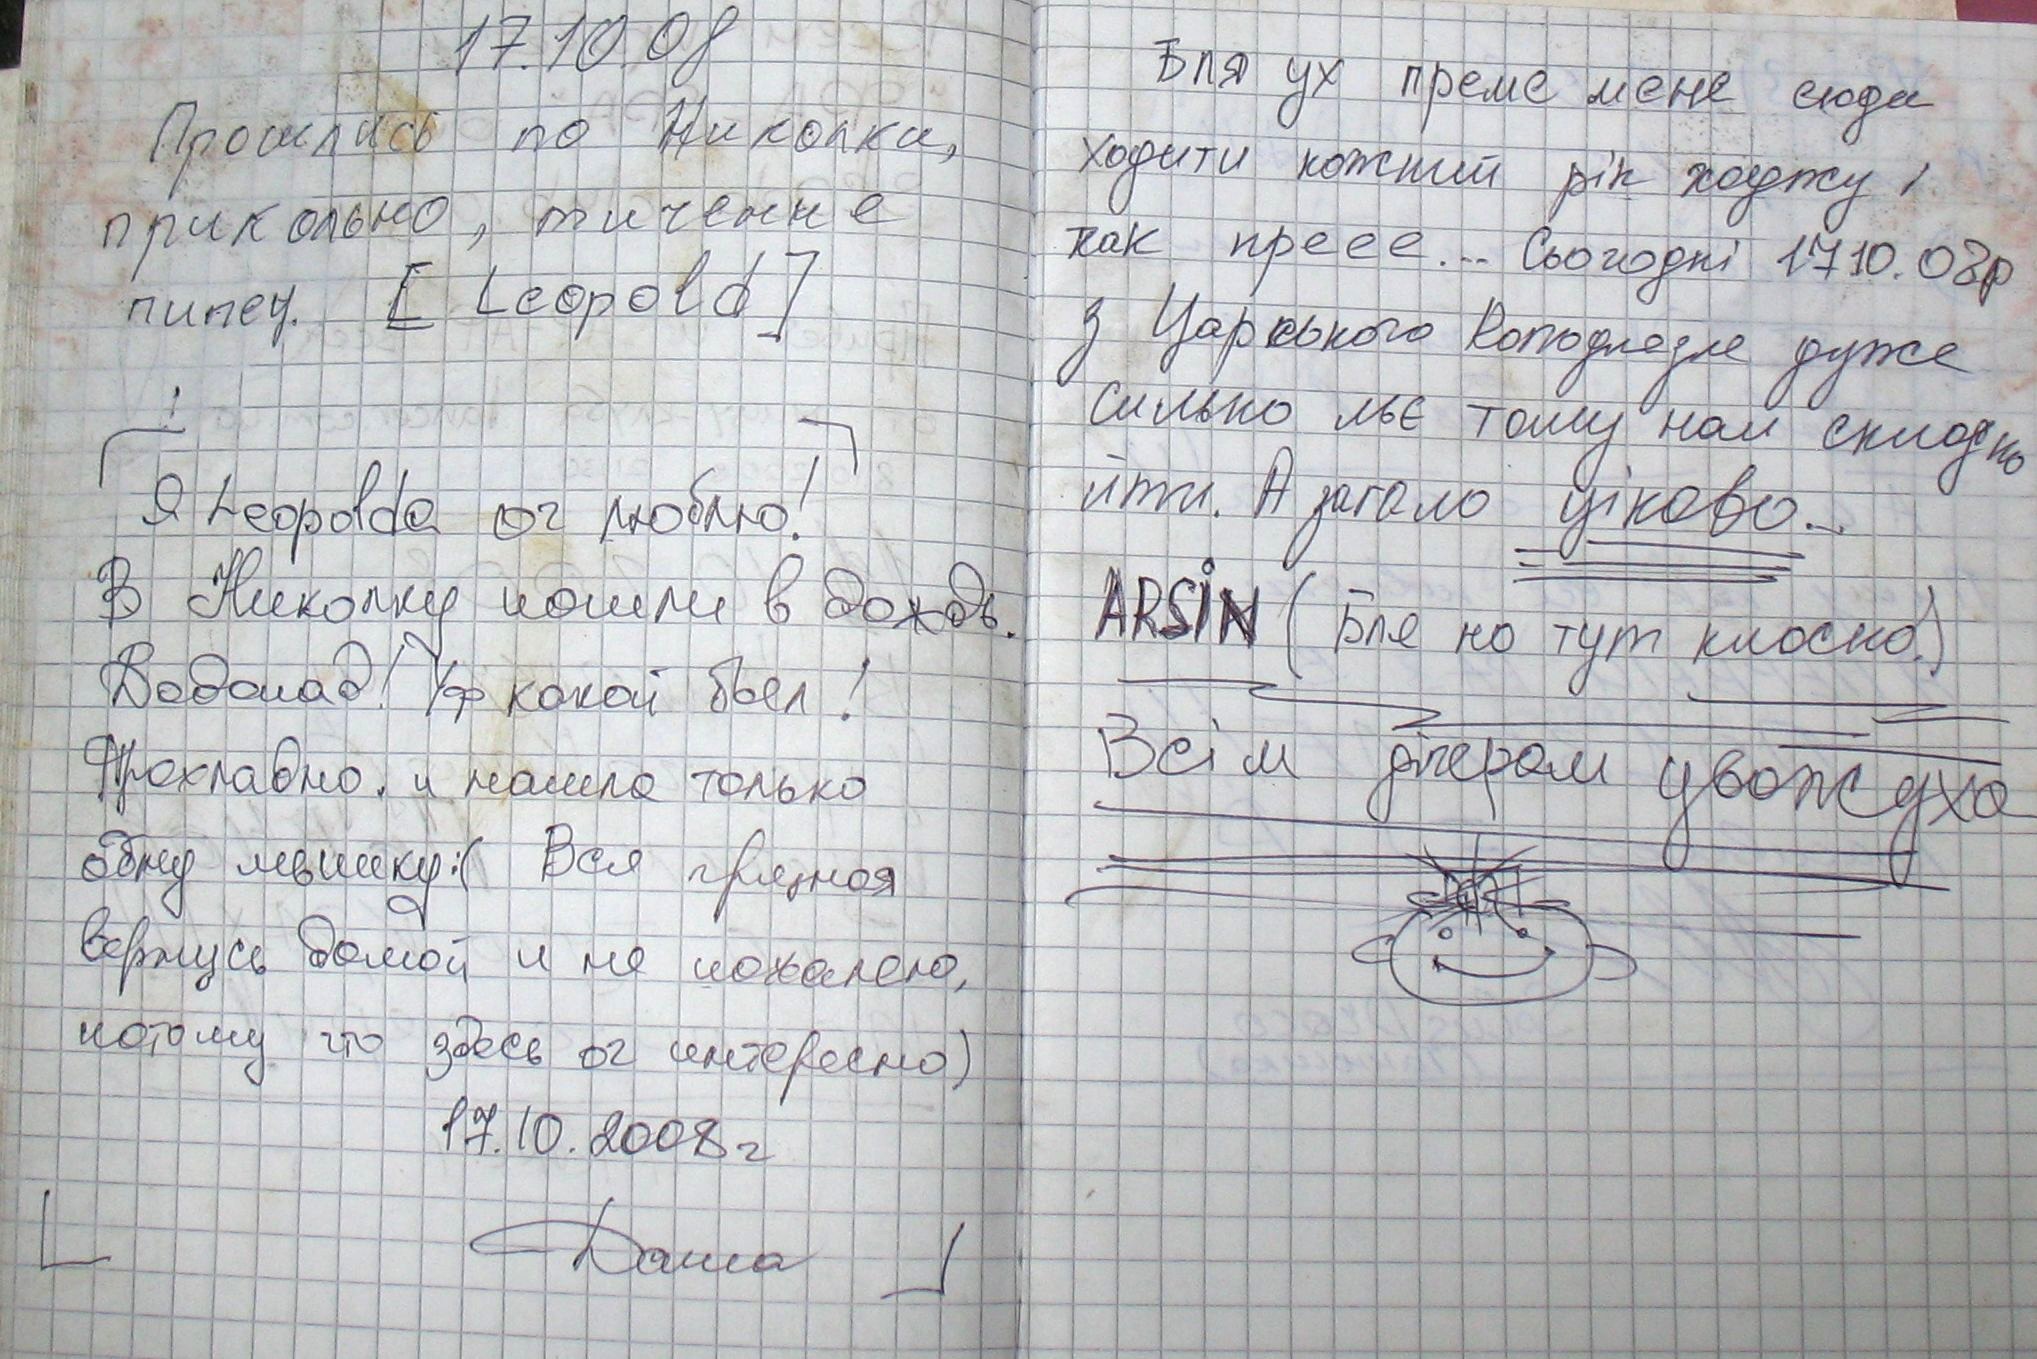 17.10.08
Прошлись по Николки,
прикольно, тичение
пипец. [Leopold]
Я Leopoldа оч люблю!
В Николку пошли в дождь.
Водопад! Уф какой был!
Прохладно. и нашла только
одну мышку:( Вся грязная
вернусь домой и не пожалею,
потому что здесь оч интересно)
17.10.2008г
Даша
Бля ух преме мене сюди
ходити кожний рік ходжу і
так прееє... Сьогодні 17.10.08р
З Царського Колодязя дуже
сильно льє тому нам складно
йти. А загало цікаво...
ARSiN (Бля но тут класно!)
Всім дігерам уважуха